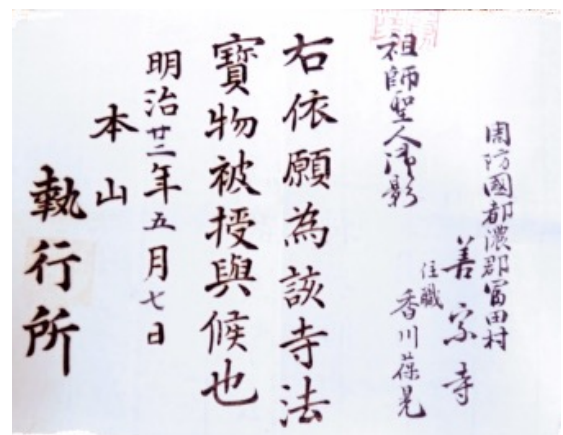 周防國都濃郡冨田村
善宗寺
住職 香川葆晃
祖師聖人御影
右依願為該寺法
寶物被授與候也
明治廿二年五月七日
本山
執行所